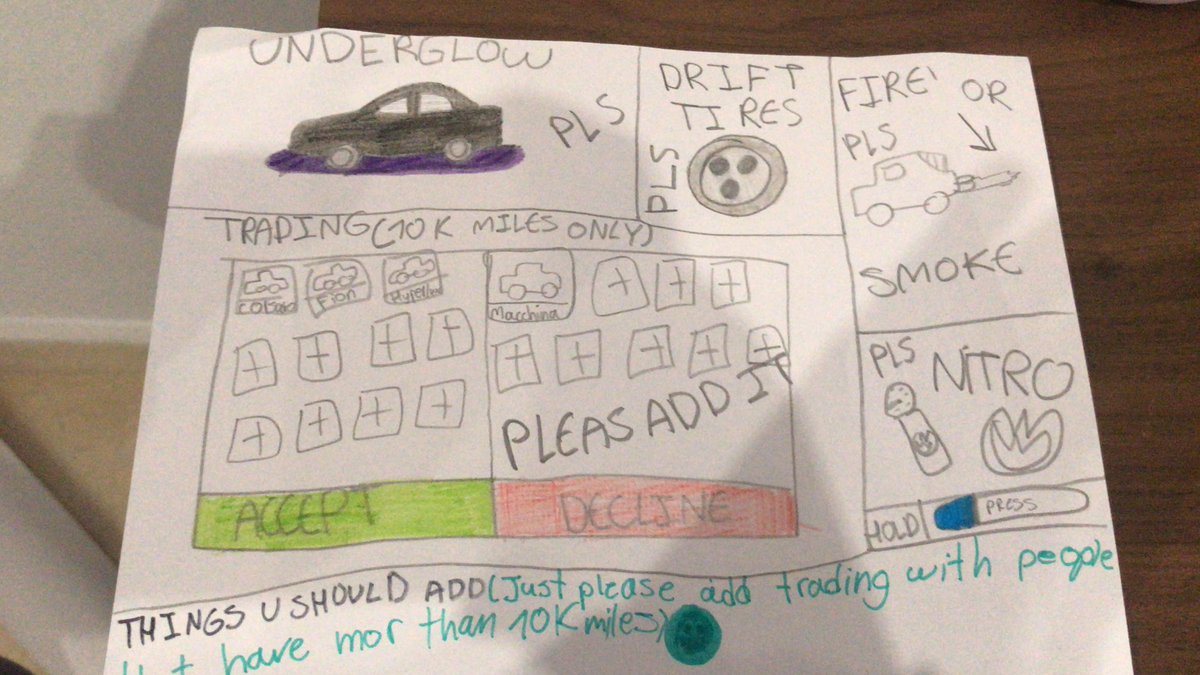 UNDERGLOW
PLS
DRIFT
TIRES
PLS
FIRE' OR
PLS
SMOKE
TRADING (10K MILES ONLY)
Fion
Macchina
PLEAS ADD IT
ACCEPT
DECLINE
PLS
NITRO
HOLD
PRESS
THINGS U SHOULD ADD (Just please add trading with people
have mor than 10K miles)